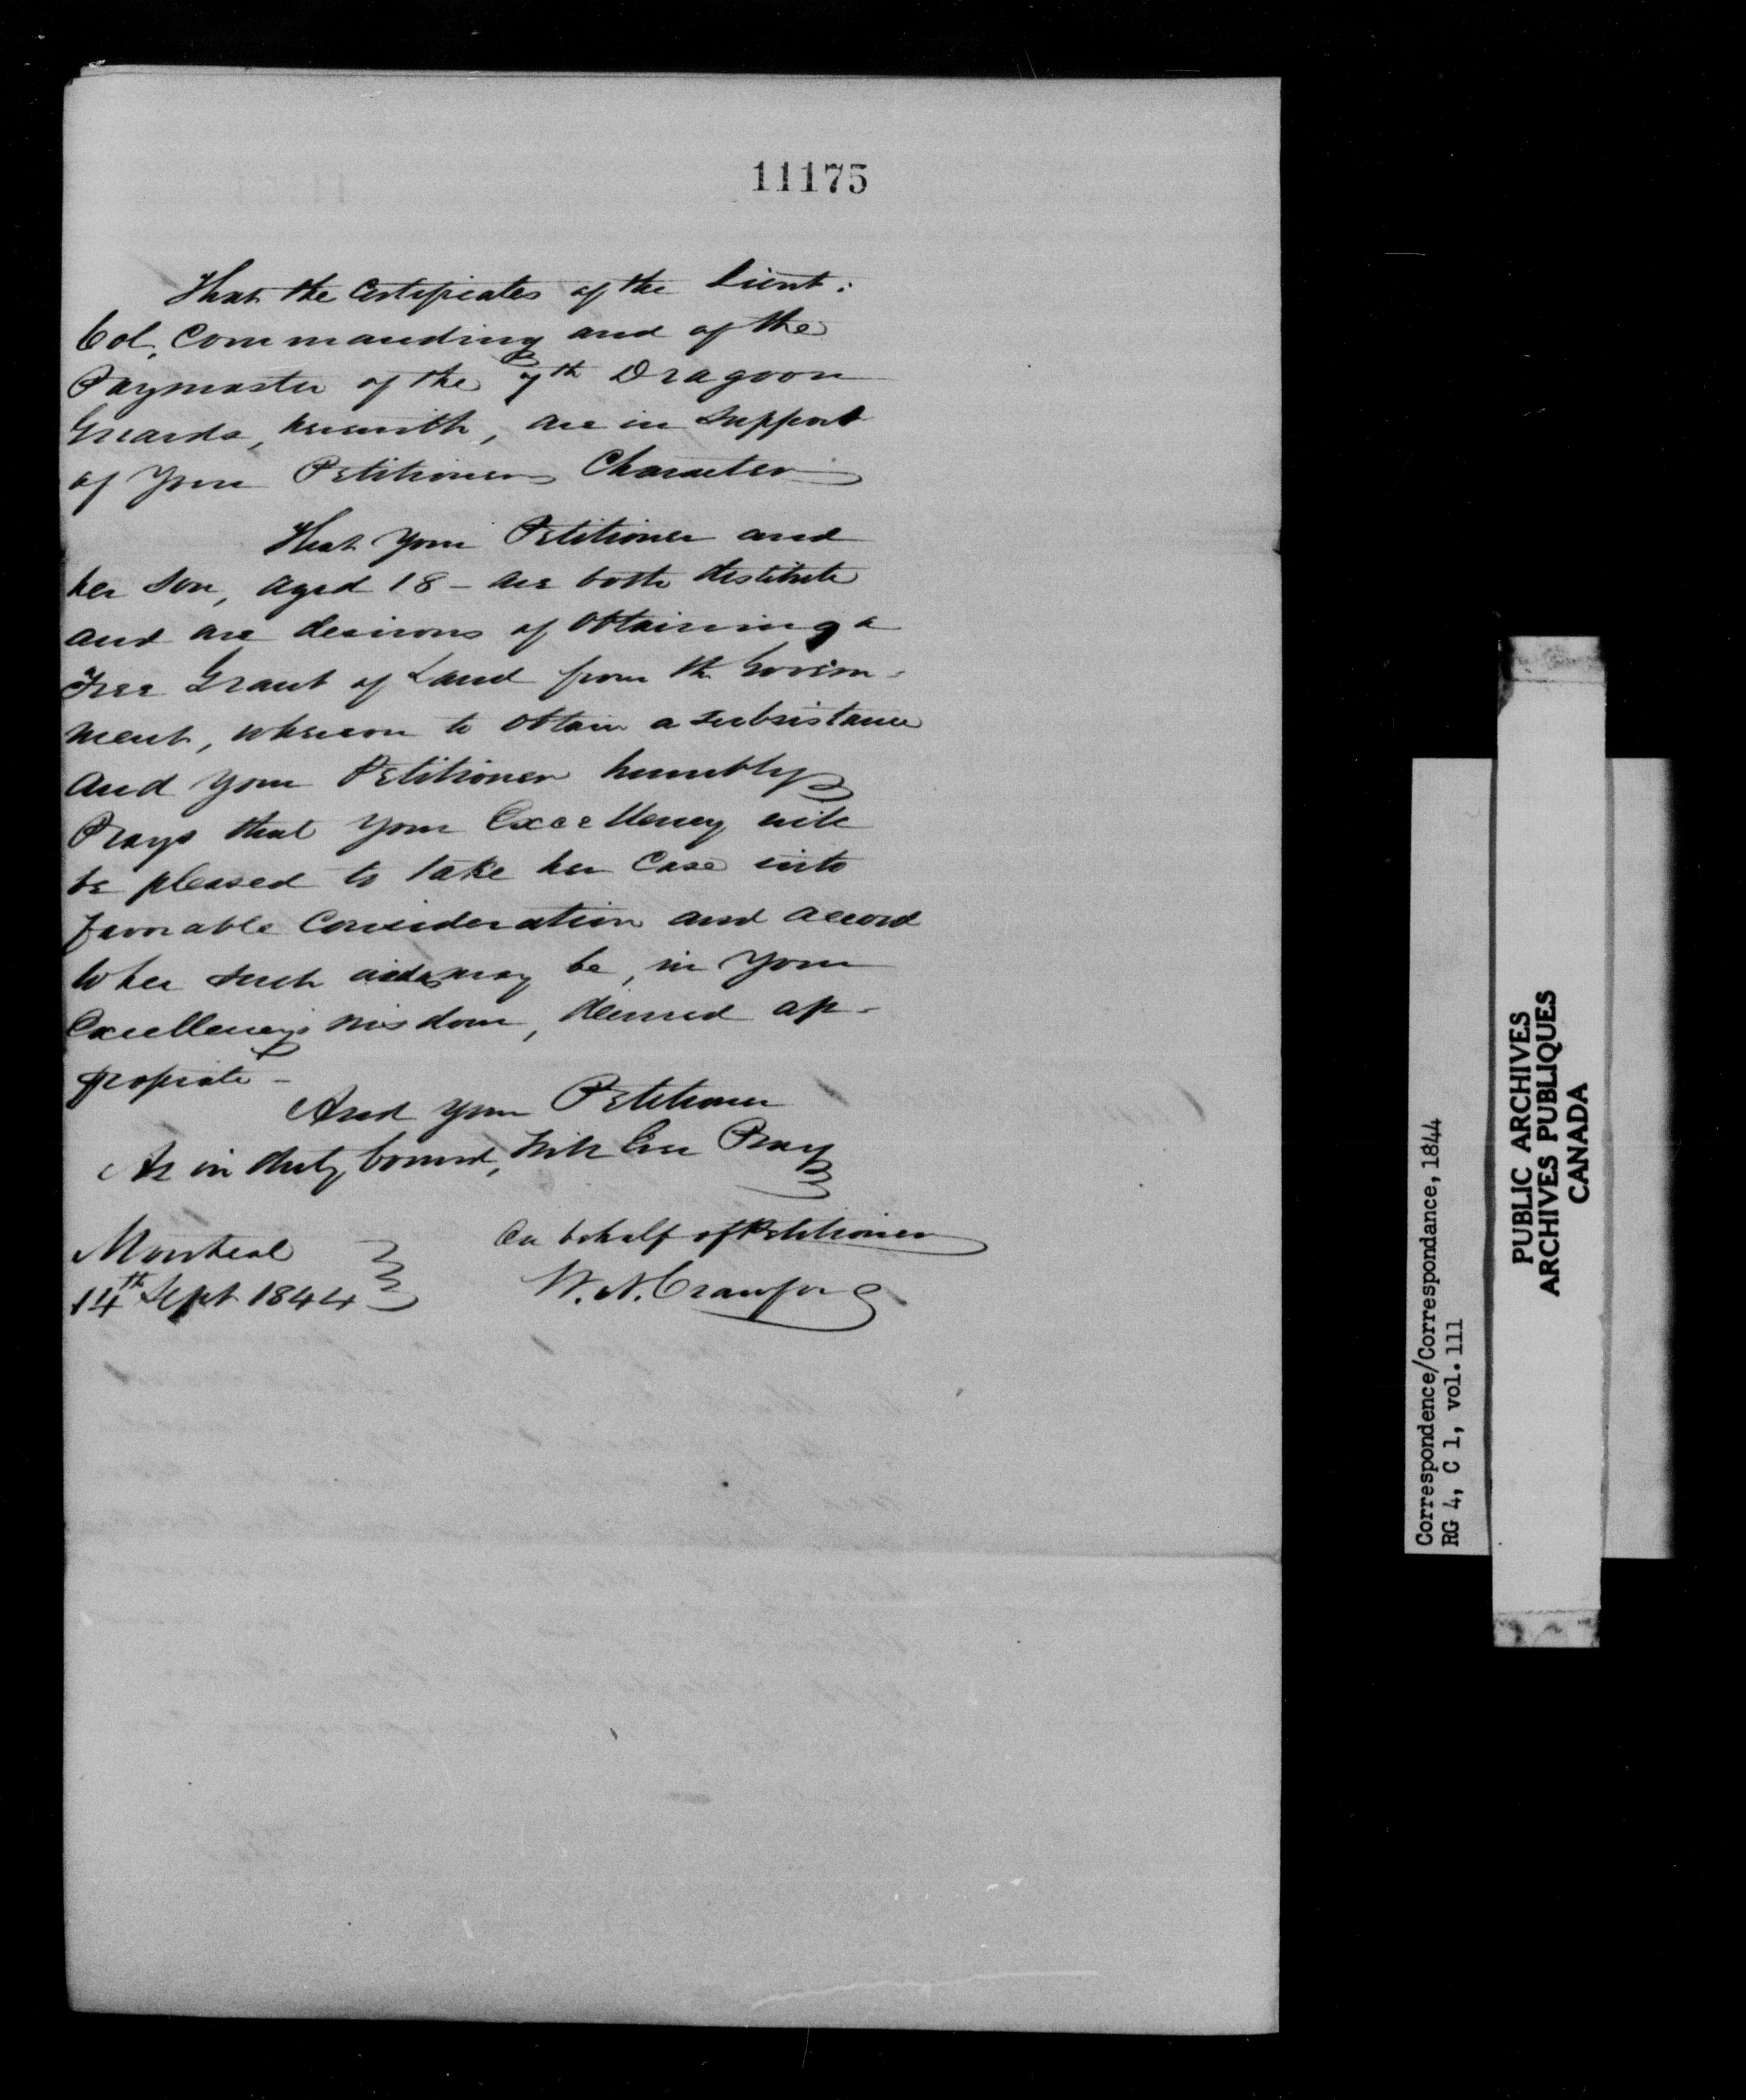 11175
That the Certificates of the Lieut:
Col, Commanding and of the
Paymaster of the 7th Dragoon
Guards, herewith, are in support
of Your Petitioners Character
That Your Petitioner and
her Son, aged 18 - are both destitute
and are desirous of obtaining a
Free Grant of Land from the Govern-
ment, whereon to obtain a subsistance
and Your Petitioner humbly
Prays that Your Excellency will
be pleased to take her Case into
favorable Consideration and accord
to her such aid as may be, in Your
Excellency's wisdom, deemed ap-
propriate -
And Your Petitioner
As in duty bound, will Ever Pray
Montreal
14th Sept 1844
On behalf of Petitioner
W. N. Crawford
Correspondence/Correspondance, 1844
RG 4, C 1, vol. 111
PUBLIC ARCHIVES
ARCHIVES PUBLIQUES
CANADA